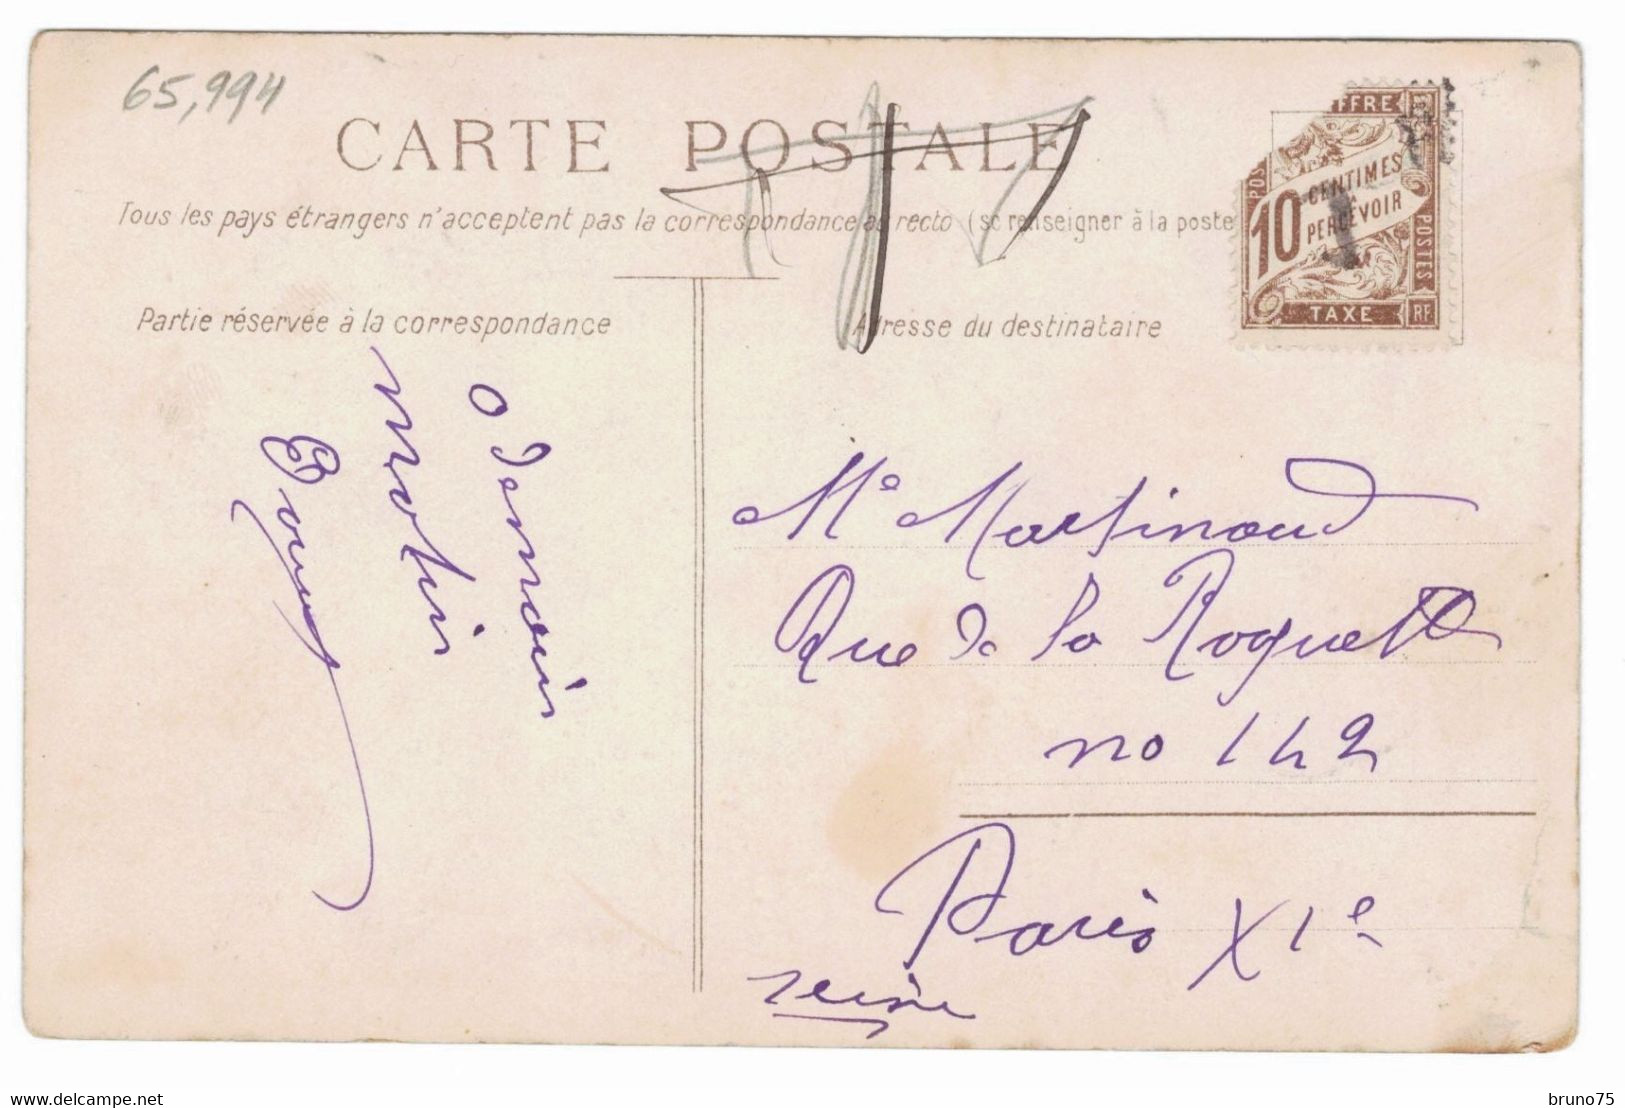 65,994
CARTE POSTALE
Tous les pays étrangers n'acceptent pas la correspondance au recto (se renseigner à la poste
FFRE
POS
10 CENTIMES
À
PERCEVOIR
POSTES
TAXE
RF
T
Partie réservée à la correspondance
Adresse du destinataire
o demain
matin
Me Martinaud
Rue de la Roquette
no 142
Paris XIe
seine
delcampe.net
bruno75